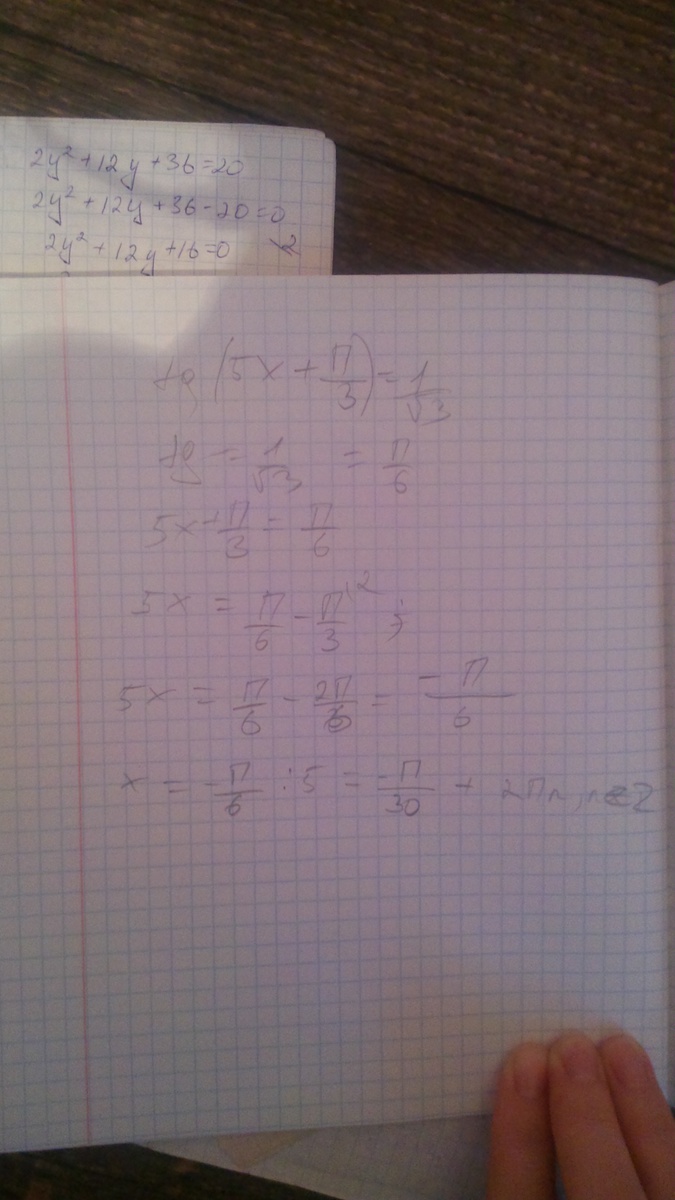 2y² + 12y + 36 = 20
2y² + 12y + 36 - 20 = 0
2y² + 12y + 16 = 0
tg (5x + П/3) = 1/√3
tg = 1/√3 = П/6
5x + П/3 = П/6
5x = П/6 - П/3 \2 ;
5x = П/6 - 2П/6 = -П/6
x = -П/6 : 5 = -П/30 + 2Пn, n∈Z